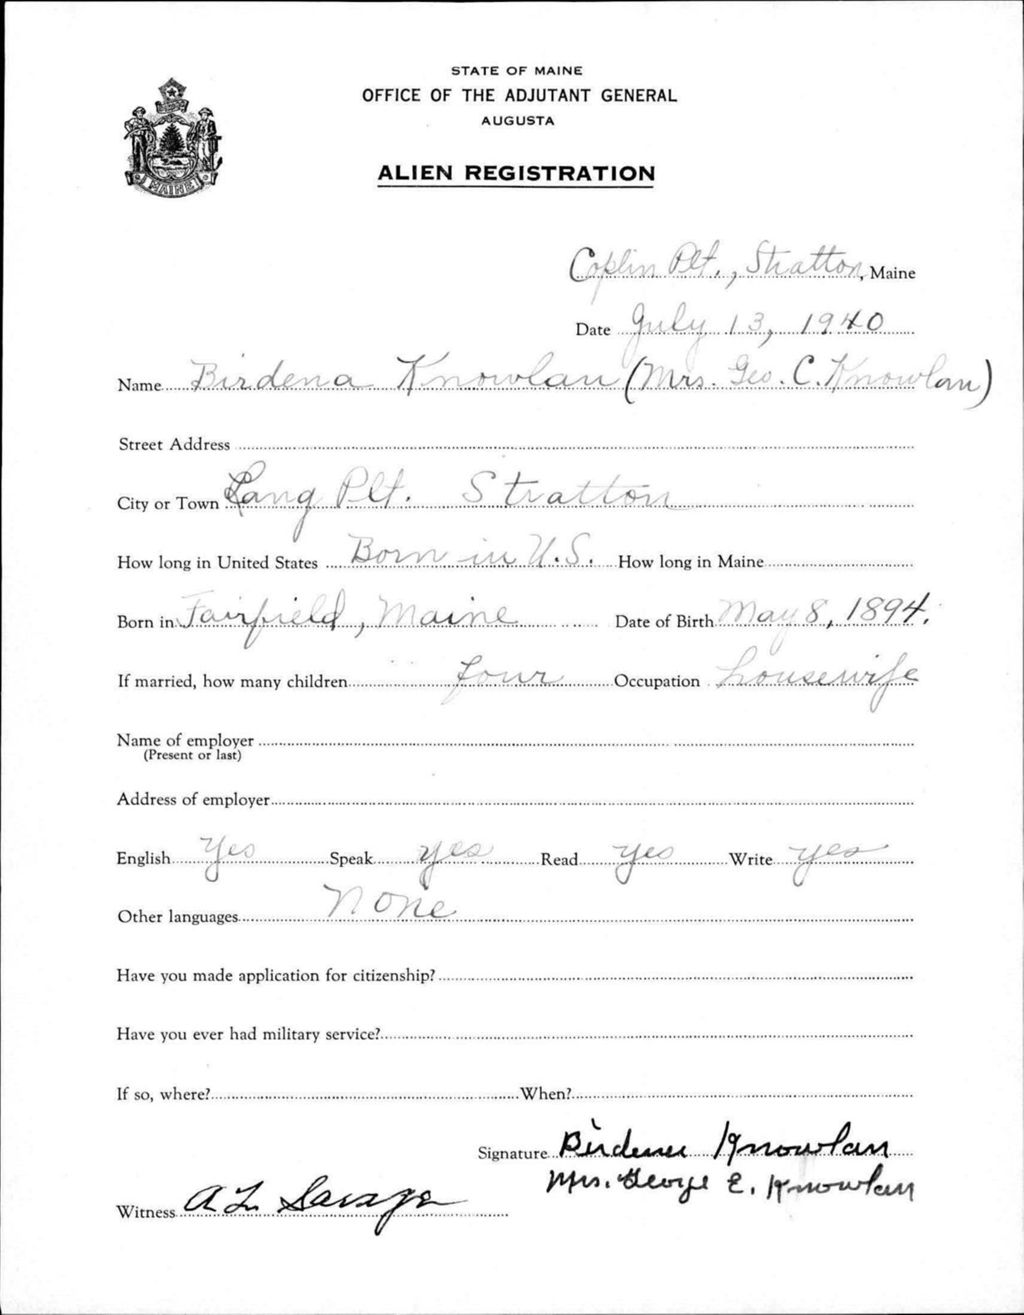 STATE OF MAINE
OFFICE OF THE ADJUTANT GENERAL
AUGUSTA
ALIEN REGISTRATION
MAINE
Coplin Plt., Stratton, Maine
Date July 13, 1940
Name Birdena Knowlan (Mrs. Geo. C. Knowlan)
Street Address
City or Town Lang Plt. Stratton
How long in United States Born in U.S. How long in Maine
Born in Fairfield, Maine Date of Birth May 8, 1894.
If married, how many children four Occupation housewife
Name of employer
(Present or last)
Address of employer
English Yes Speak yes Read yes Write yes
Other languages None
Have you made application for citizenship?
Have you ever had military service?
If so, where? When?
Signature Birdena Knowlan
Mrs. George E. Knowlan
Witness A L Savage